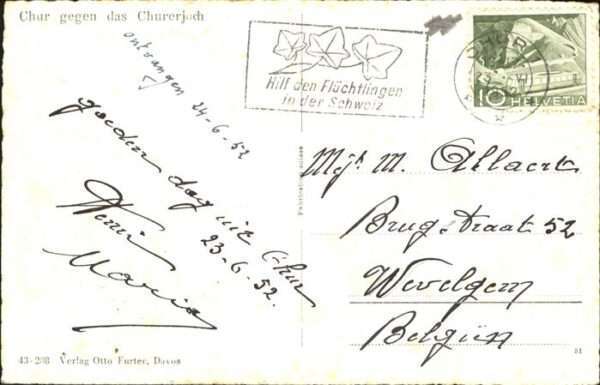 Chur gegen das Churerjoch
ontvangen 24-6-52
goeden dag uit Chur
23-6-52.
Maria
Hilf den Flüchtlingen
in der Schweiz
CHUR
10 HELVETIA
Mej. M. Allaert
Brugstraat 52
Wevelgem
Belgïen
43-208 Verlag Otto Furter, Davos